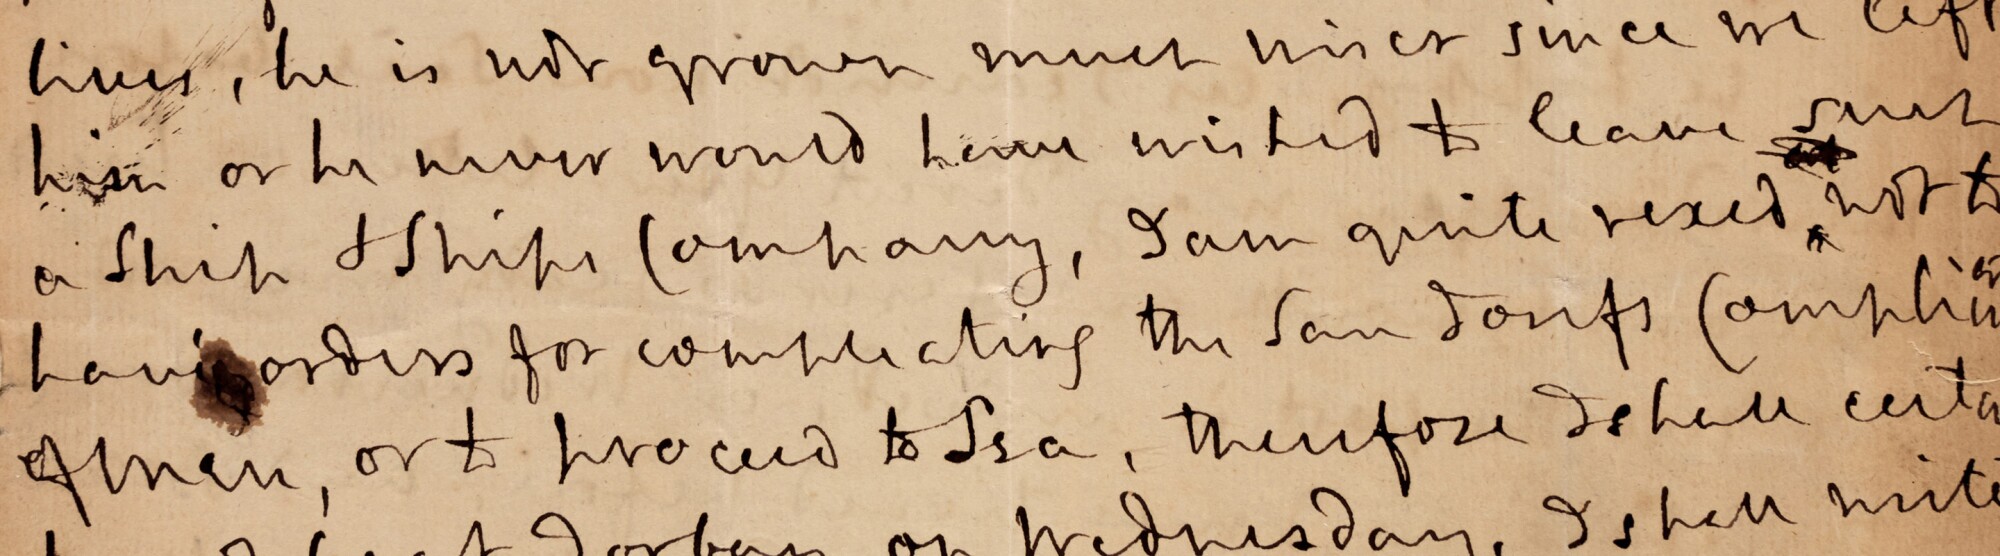 lives, he is not grown much wiser since we left
him or he never would have wished to leave such
a Ship & Ships Company, I am quite vexed not to
having orders for compleating the San Josefs Complim
of men, or to proceed to Sea, therefore I shall certa
at Torbay on Wednesday, I shall write